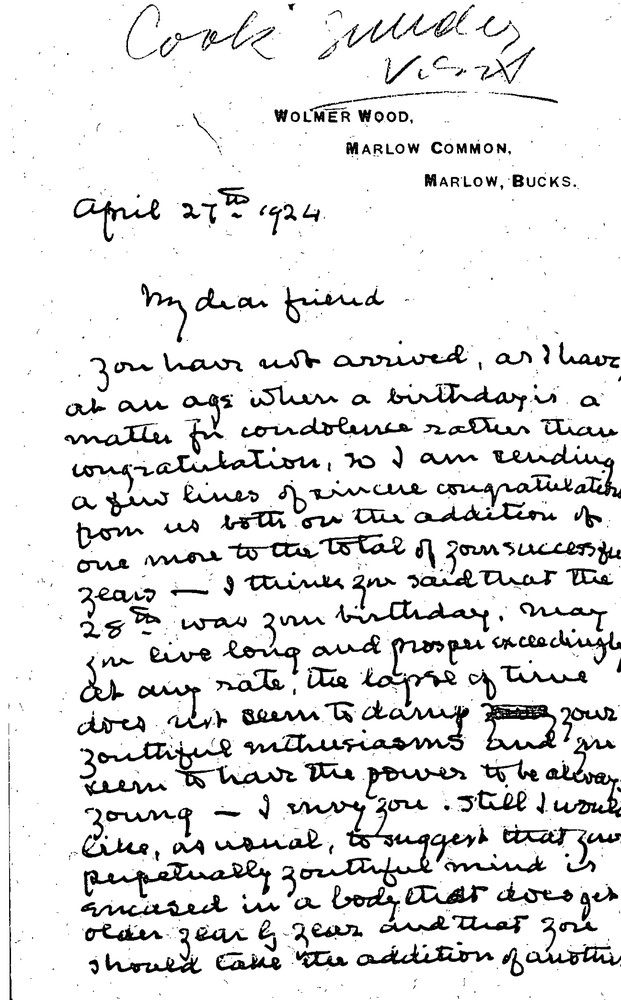 Cook Sunday
Visit
WOLMER WOOD,
MARLOW COMMON,
MARLOW, BUCKS.
April 27th 1924
My dear friend
You have not arrived, as I have,
at an age when a birthday is a
matter for condolence rather than
congratulation, so I am sending
a few lines of sincere congratulation
from us both on the addition of
one more to the total of your successful
years — I think you said that the
28th was your birthday. May
you live long and prosper exceedingly
At any rate, the lapse of time
does not seem to damp your
youthful enthusiasms and you
seem to have the power to be always
young — I envy you. Still I would
like, as usual, to suggest that your
perpetually youthful mind is
encased in a body that does get
older year by year and that you
should take the addition of another